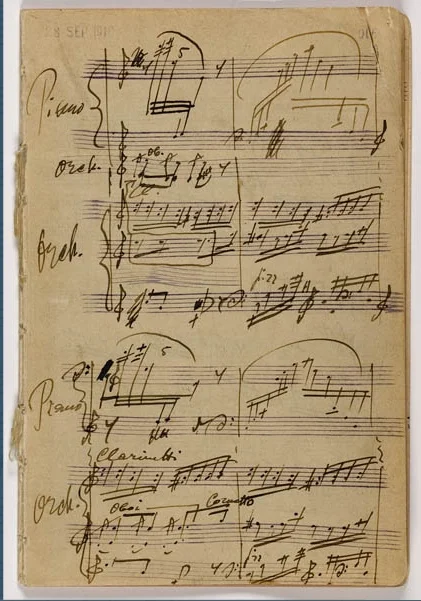 8 SEP 191
Piano
Orch.
ob.
5
Orch.
5
Piano
Clarinetti
Orch.
Oboi
Cornetto